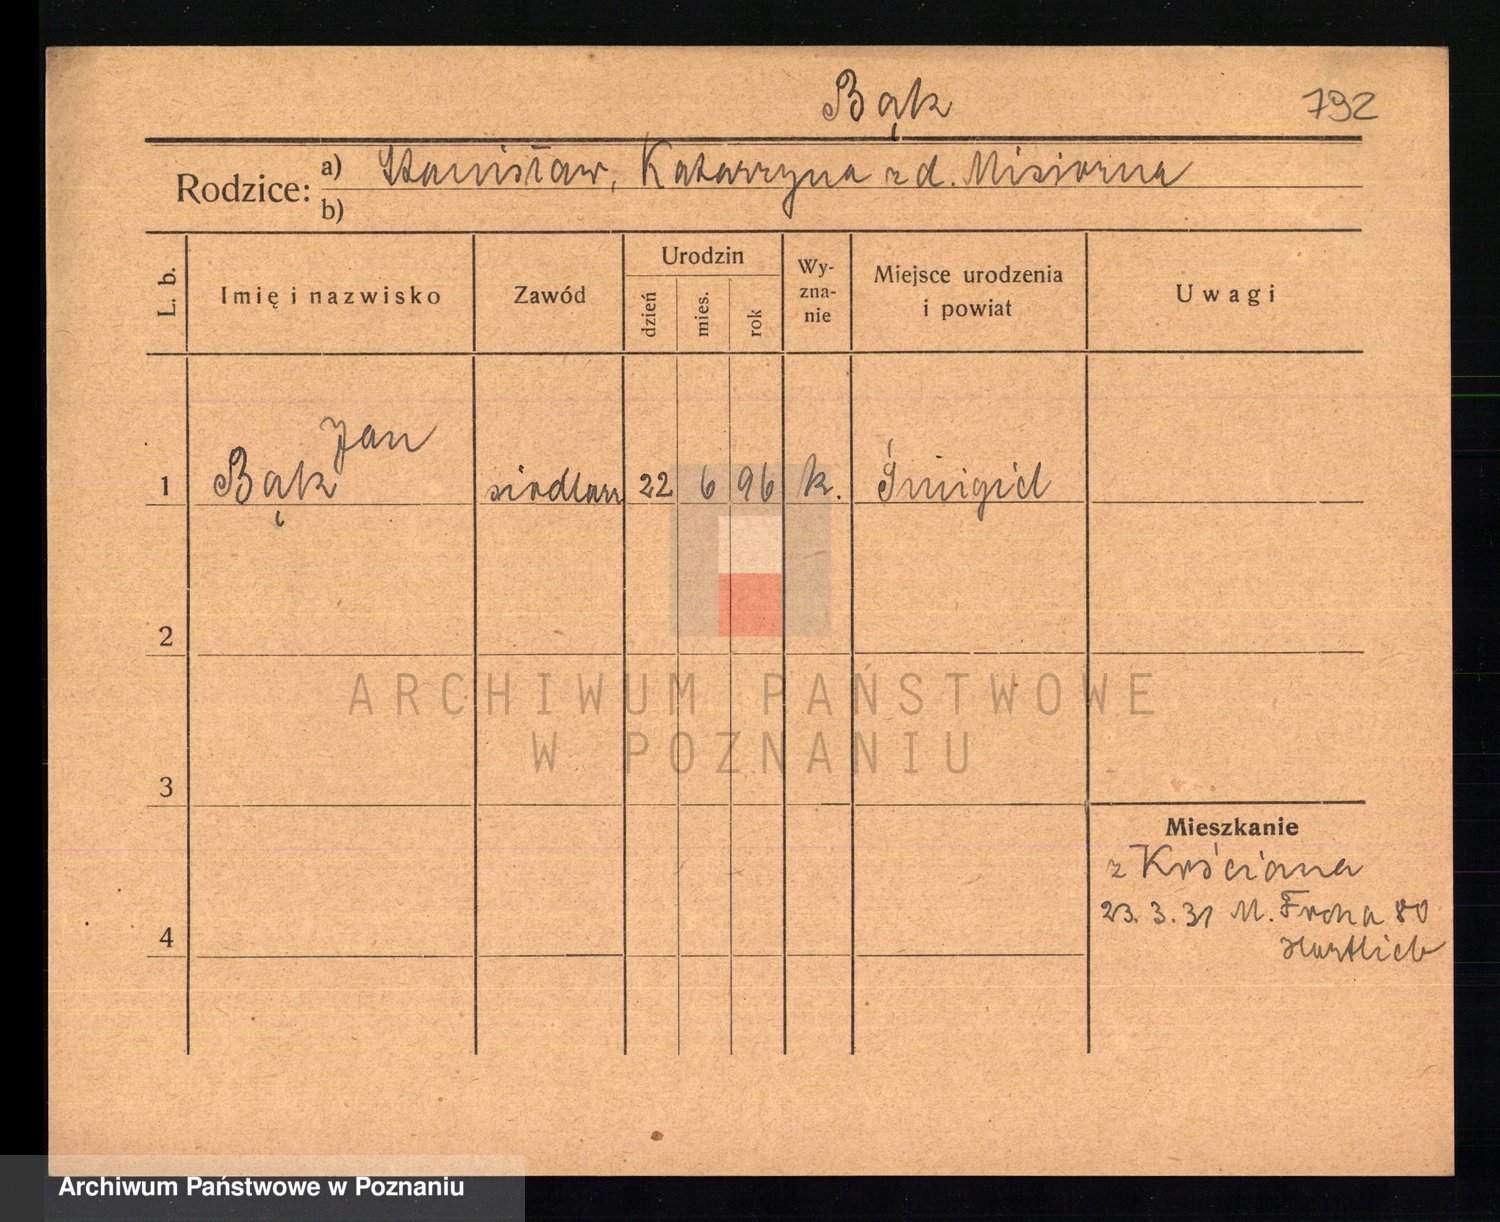 Bąk
792
Rodzice: a) Stanisław, Katarzyna zd. Misiorna
b)
L. b.
Imię i nazwisko
Zawód
Urodzin
dzień
mies.
rok
Wy-
zna-
nie
Miejsce urodzenia
i powiat
Uwagi
Jan
1 Bąk siodlarz 22 6 96 k. Śmigiel
2
ARCHIWUM PAŃSTWOWE
W POZNANIU
3
Mieszkanie
z Kościana
23. 3. 31 M. Focha 80
Hartlieb
4
Archiwum Państwowe w Poznaniu